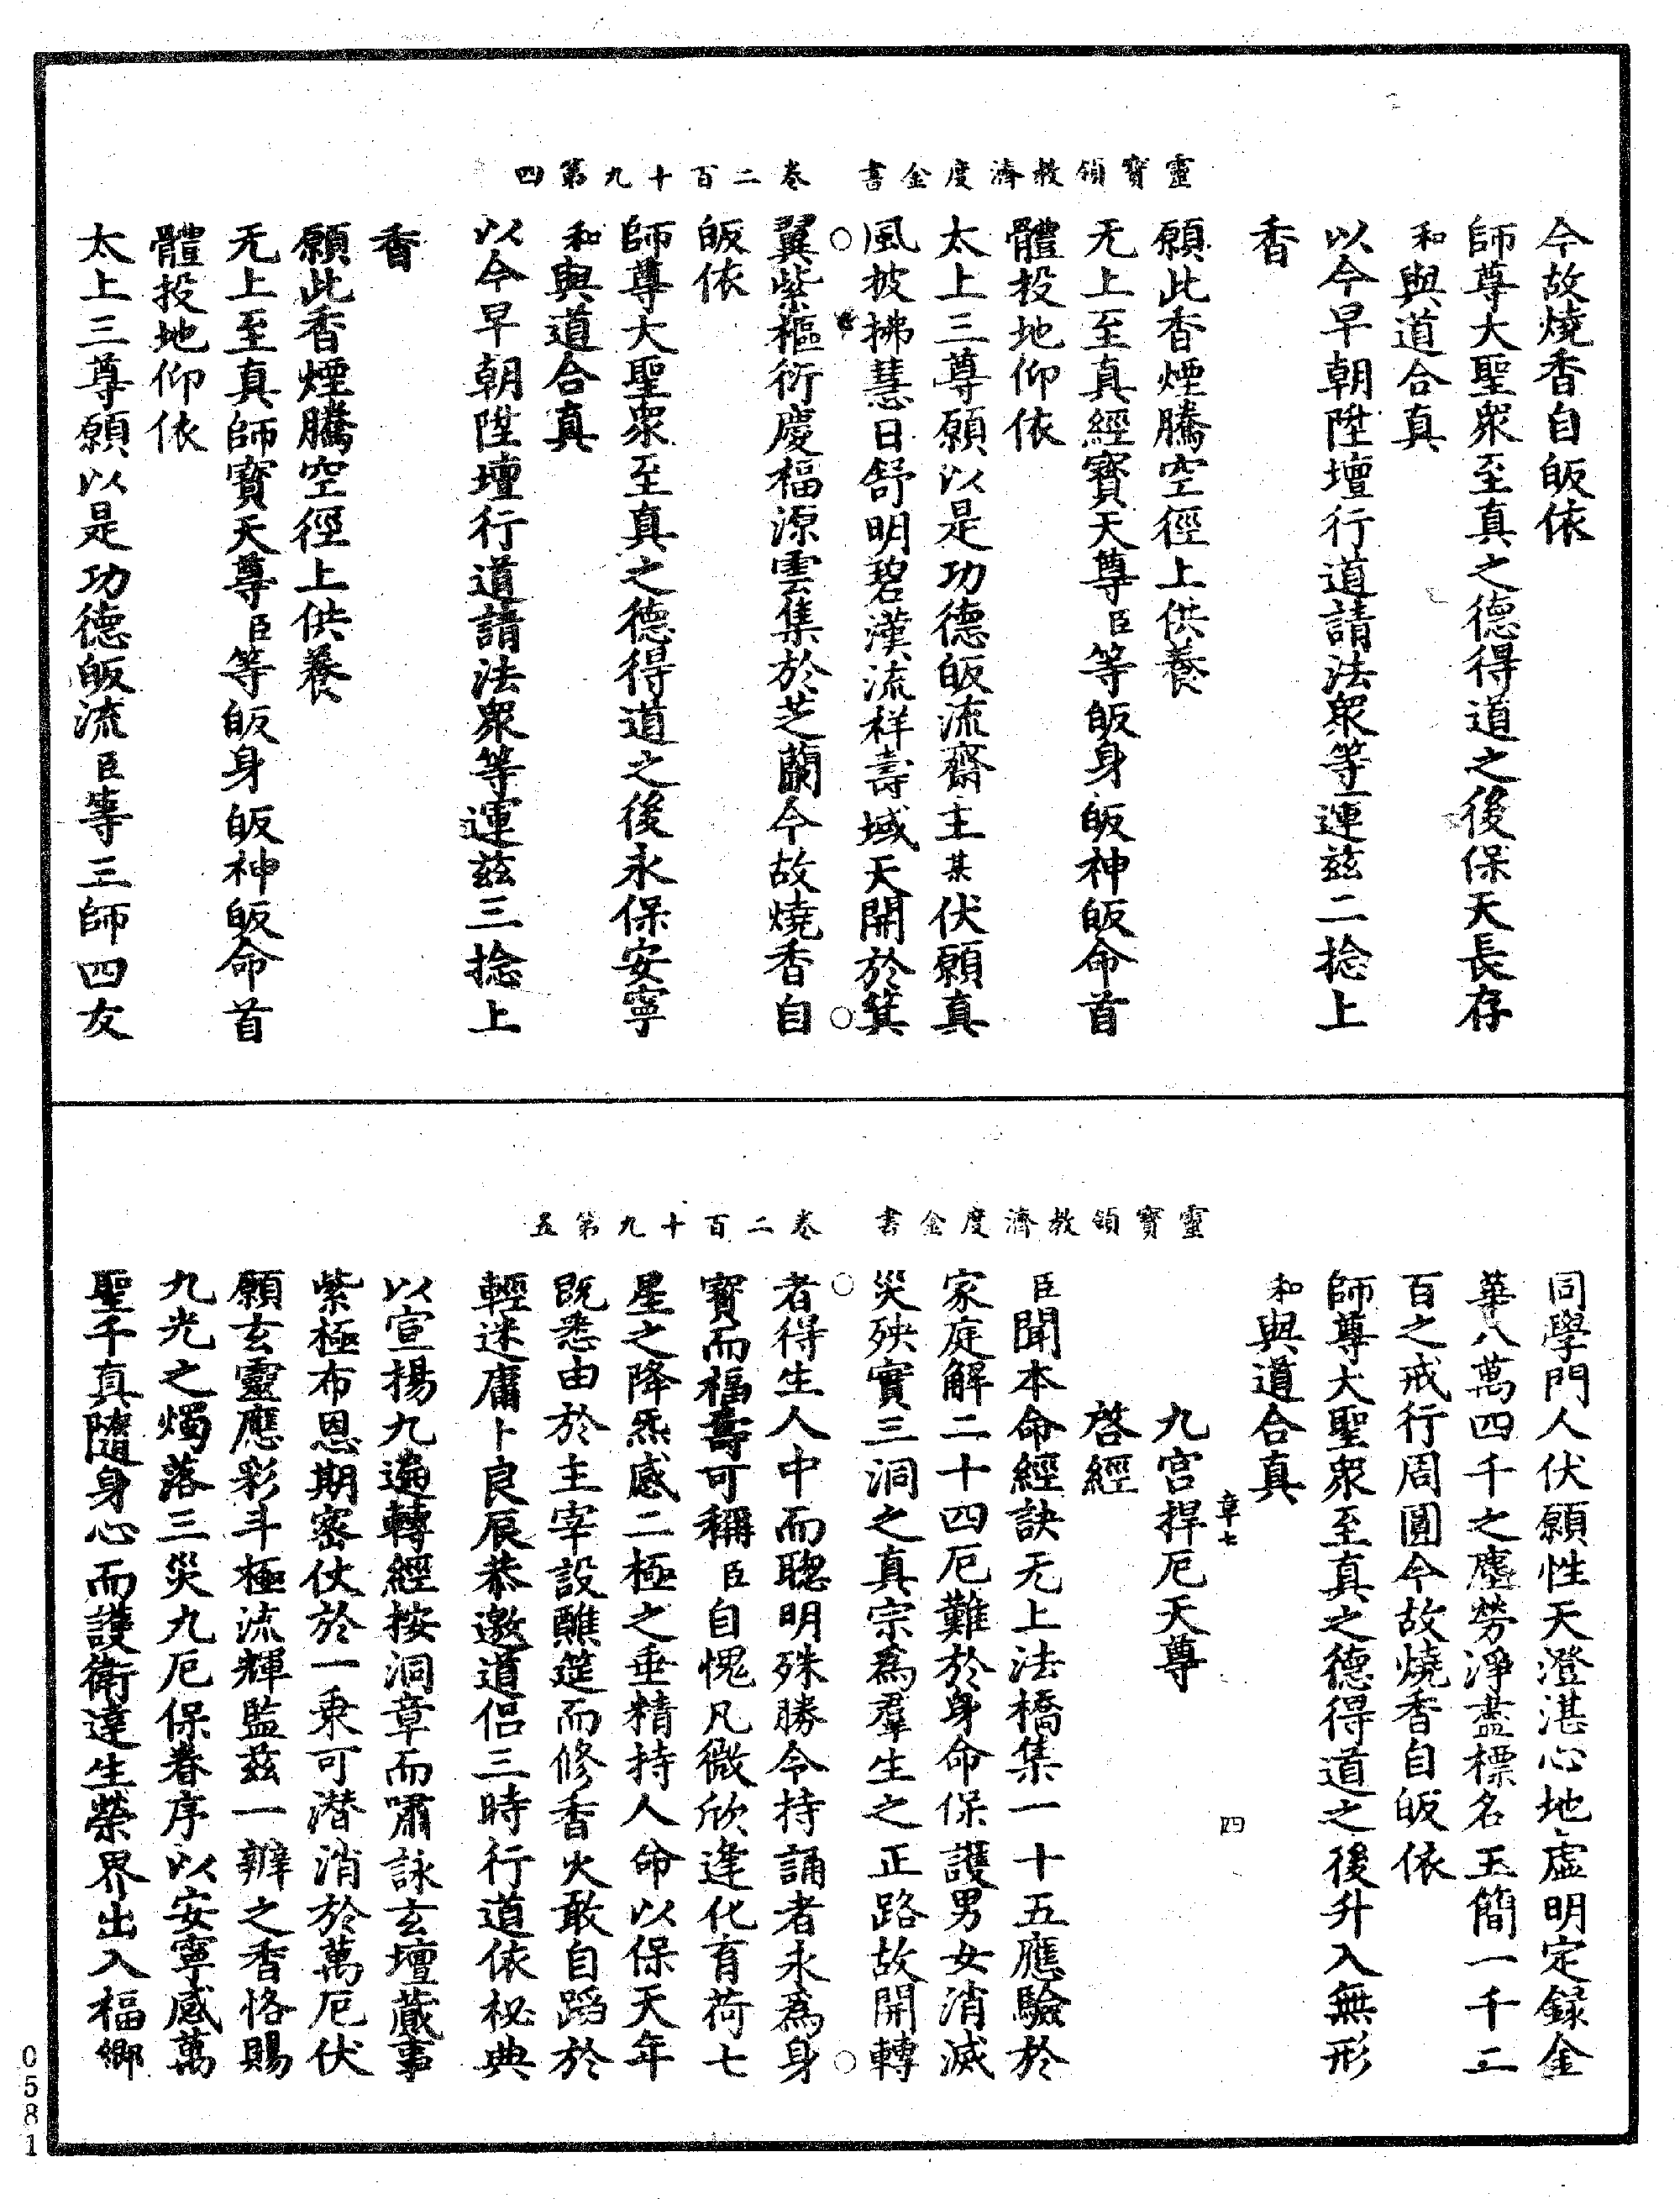 靈寶領教濟度金書　卷二百十九第四
今故燒香自皈依
師尊大聖衆至真之德得道之後保天長存
和與道合真
以今早朝陞壇行道請法衆等運茲二捻上
香
願此香煙騰空徑上供養
无上至真經寶天尊臣等皈身皈神皈命首
體投地仰依
太上三尊願以是功德皈流齋主某伏願真
風披拂慧日舒明碧漢流祥壽域天開於箕
翼紫樞衍慶福源雲集於芝蘭今故燒香自
皈依
師尊大聖衆至真之德得道之後永保安寧
和與道合真
以今早朝陞壇行道請法衆等運茲三捻上
香
願此香煙騰空徑上供養
无上至真師寶天尊臣等皈身皈神皈命首
體投地仰依
太上三尊願以是功德皈流臣等三師四友
靈寶領教濟度金書　卷二百十九第五
同學門人伏願性天澄湛心地虛明定録金
華八萬四千之塵勞淨盡標名玉簡一千二
百之戒行周圓今故燒香自皈依
師尊大聖衆至真之德得道之後升入無形
和與道合真
章七　四
九宮捍厄天尊
啓經
臣聞本命經訣无上法橋集一十五應驗於
家庭解二十四厄難於身命保護男女消滅
災殃實三洞之真宗為羣生之正路故開轉
者得生人中而聰明殊勝令持誦者永為身
寶而福壽可稱臣自愧凡微欣逢化育荷七
星之降炁感二極之垂精持人命以保天年
既悉由於主宰設醮筵而修香火敢自蹈於
輕迷庸卜良辰恭邀道侶三時行道依祕典
以宣揚九遍轉經按洞章而嘯詠玄壇蕆事
紫極布恩期密伏於一乗可潛消於萬厄伏
願玄靈應彩斗極流輝監茲一辦之香恪賜
九光之燭落三災九厄保眷序以安寧感萬
聖千真隨身心而護衛達生榮界出入福鄉
0581